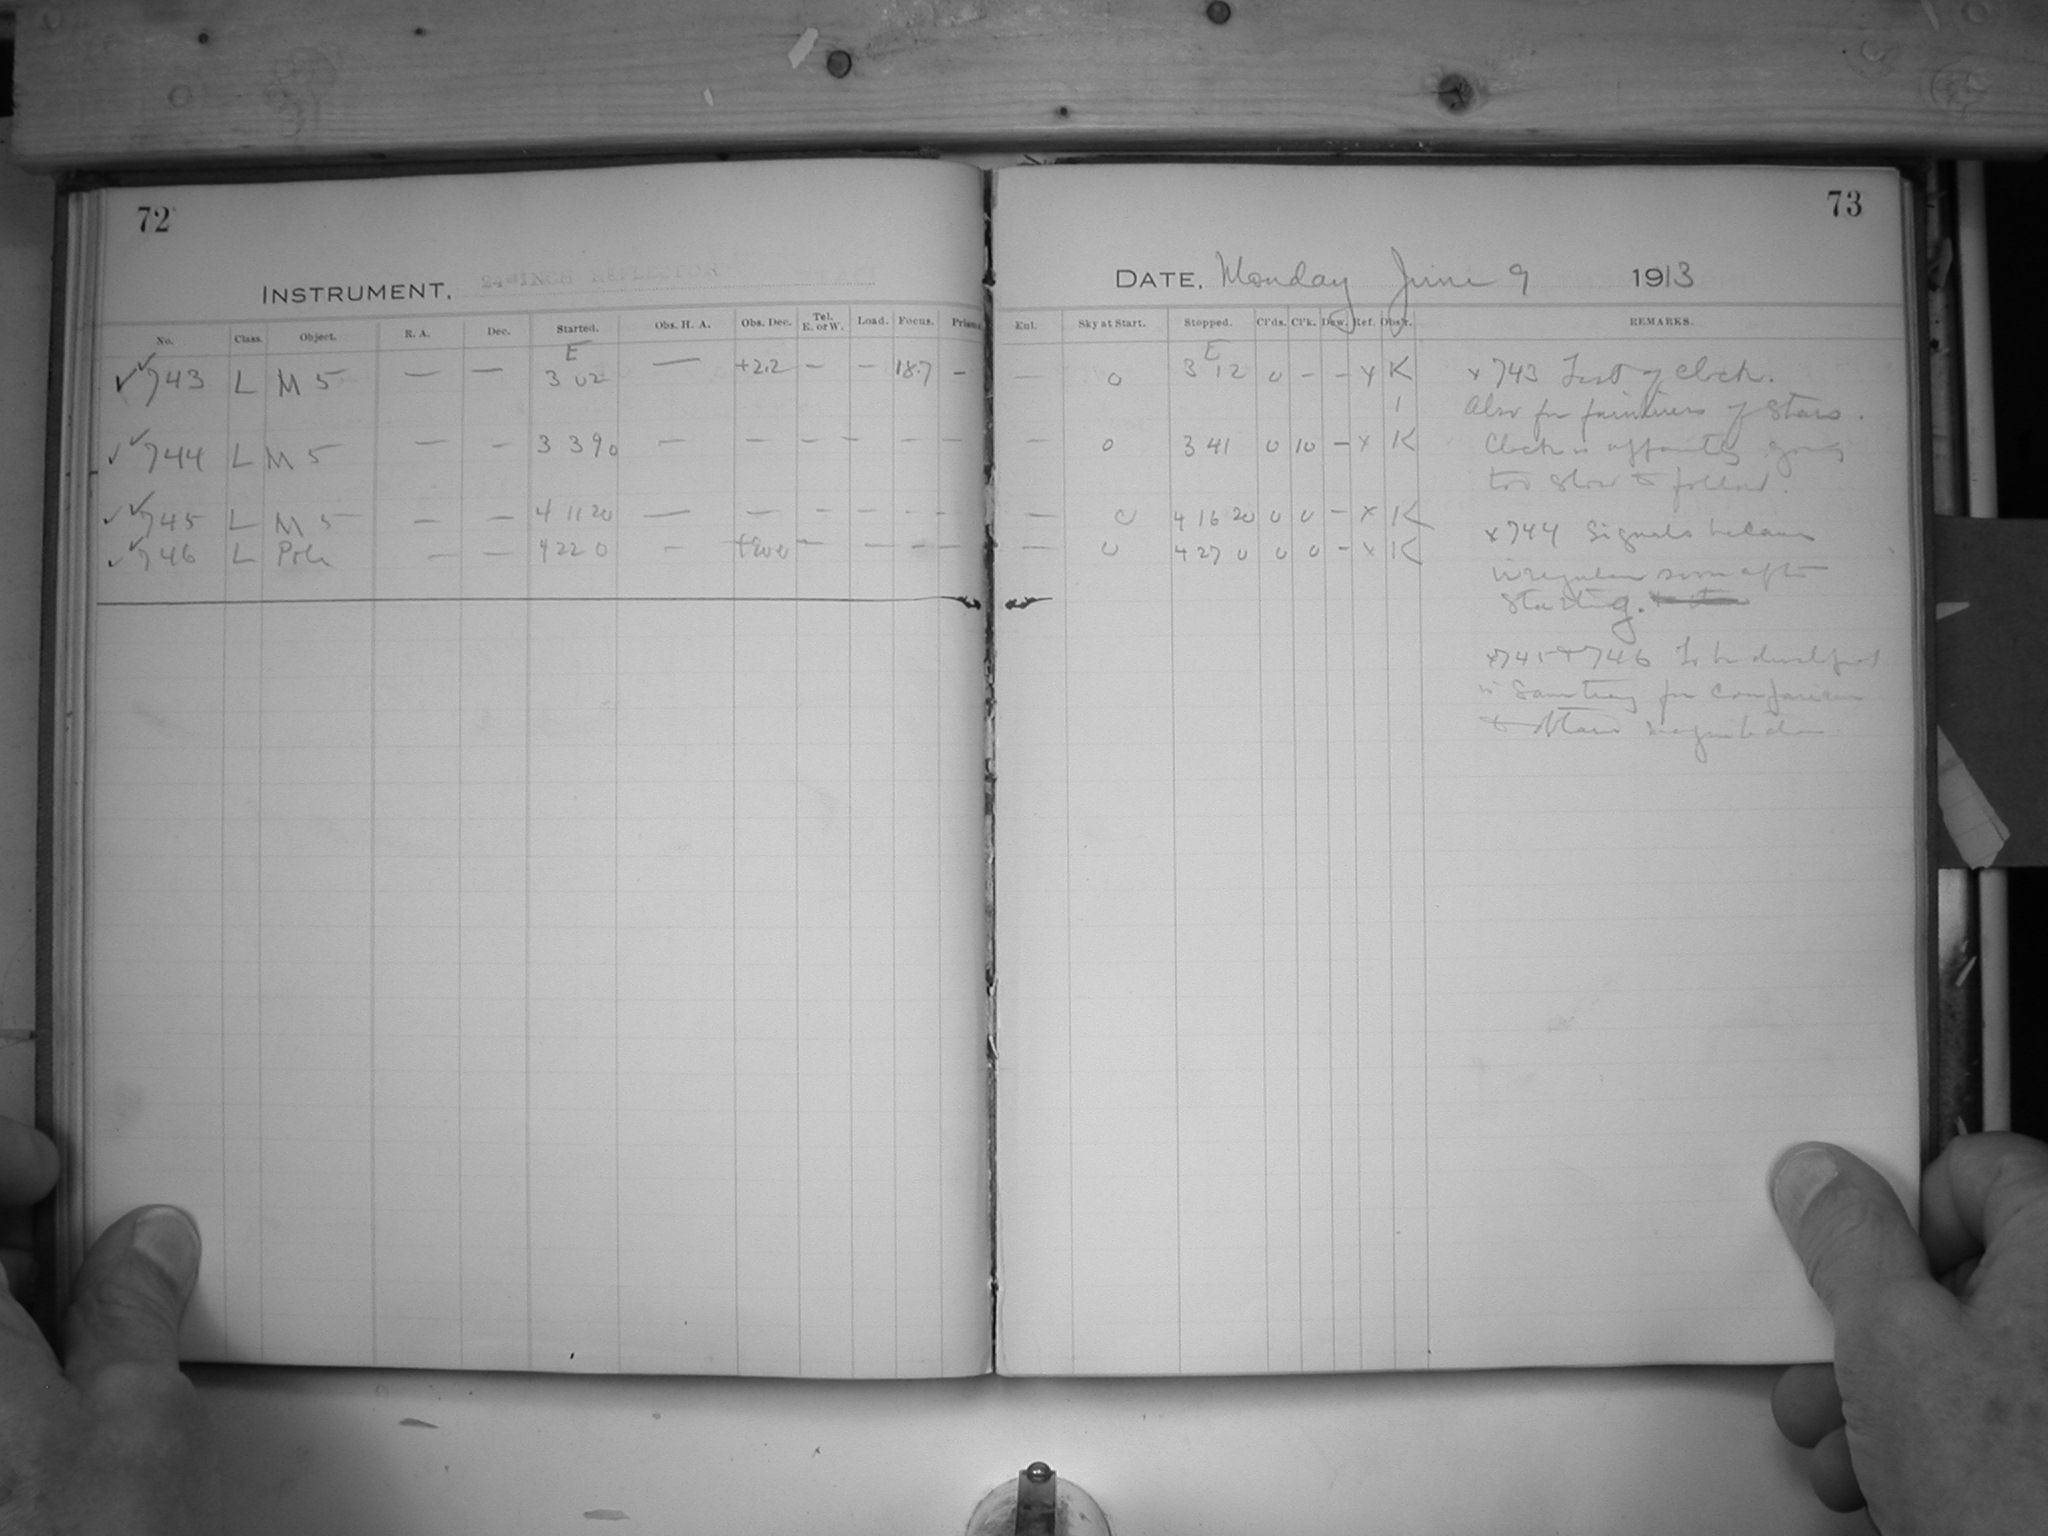 72
INSTRUMENT. 24-INCH REFLECTOR
No. Class. Object. R. A. Dec. Started. Obs. H. A. Obs. Dec. Tel. E. or W. Load. Focus. Prism.
E
✓✓743 L M 5 — — 3 02 — +2.2 – – 18.7 –
✓✓744 L M 5 — – 3 39 0 — — – – – –
✓✓745 L M 5 — — 4 11 20 — — – – – –
✓✓746 L Pole — — 4 22 0 – – – – –
73
DATE. Monday June 9 1913
Enl. Sky at Start. Stopped. Cl'ds. Cl'k. Daw. Ref. Obs'r. REMARKS.
E
— 0 3 12 0 – – x K
1
— 0 3 41 0 10 – x K
— 0 4 16 20 0 0 – x K
— 0 4 27 0 0 0 – x K
x 743 Test of Clock.
Also for faintness of Stars.
Clock is apparently going
too slow to follow.
x 744 Signals became
irregular soon after
starting.
x745 + 746 To be developed
in Same tray for Comparison
to obtain magnitudes.